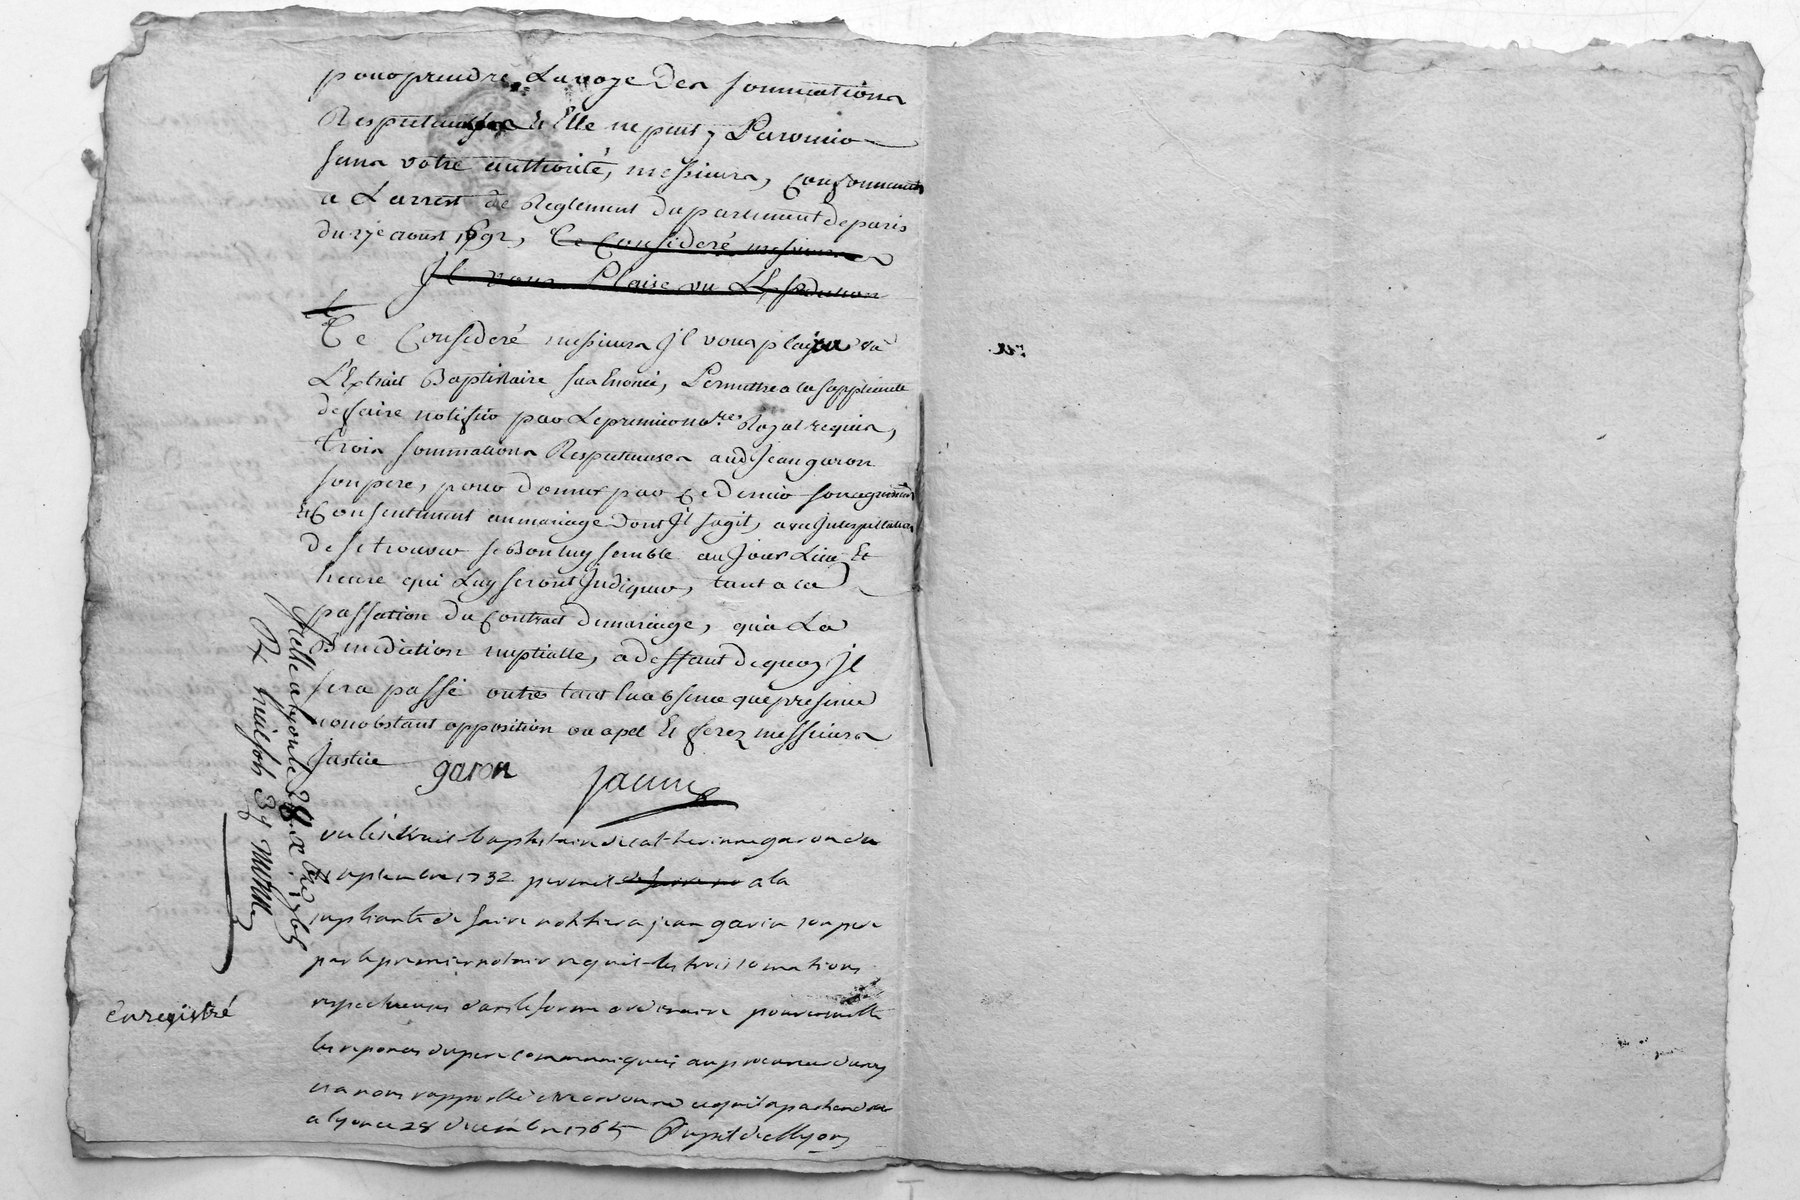 pour prendre La voye Des sommations
Respectueuses Et Elle ne peut y Parvenir
sans votre authorité, messieurs, Conformement
a Larrest de Reglement du parlement de paris
du 27e aoust 1692, Ce Consideré messieurs
Il vous Plaise vu L'Expedition
Ce Consideré messieurs Il vous plaise vu
L'Extrait Baptistaire sus Enoncé, Permettre a la suppliante
de faire notifier par Le premier nre Royal requis,
trois sommations Respectueuses aud Jean garon
son pere, pour Donner par Ce Dernier son agrement
Et Consentement au mariage Dont Il sagit, avec Interpellation
De se trouver se Bon luy semble au Jour Lieu Et
heure qui Luy seront Indiqués, tant a la
passation du Contract de mariage, qu'a La
Benediction nuptialle, a deffaut de quoy Il
sera passé outre tant En absence que presence
nonobstant opposition ou apel Et ferez messieurs
Justice garon
vu l'extrait baptistaire de catherinne garon du
septembre 1732 permet a la
supliante de faire notifier a jean garon son pere
par le premier notaire requis les trois somations
respectueuses dans la forme ordinaire pour ensuitte
les reponces du pere communiquées au procureur du roy
et a nous rapporté etre ordonné ce qu'il apartiendra
a lyon ce 28 decembre 1765 Pupil de Myons
scellé a lyon le 28 xbre 1765
Rx huit sols 3d
Enregistré